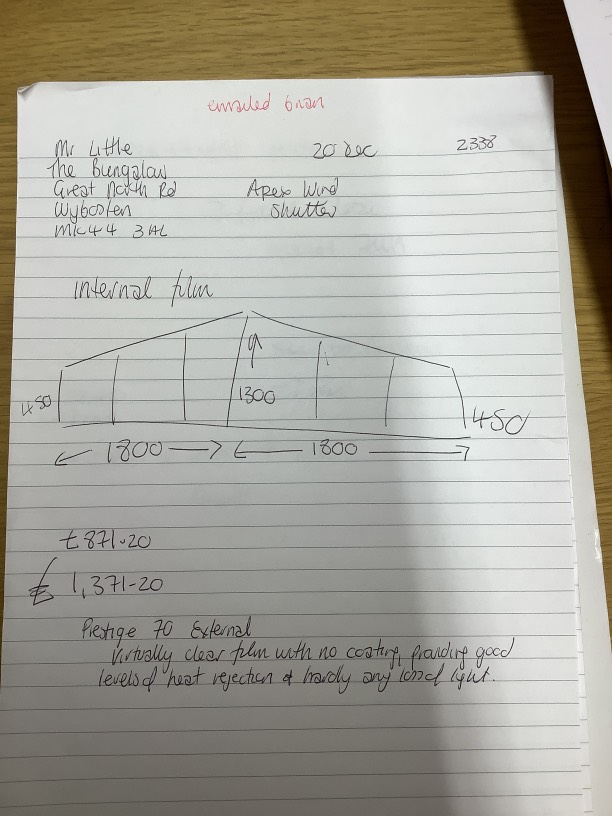 emailed brian
Mr Little 20 Dec 2338
The Bungalow
Great North Rd Apex Wind
Wyboston Shutter
MK44 3AL
internal film
450 1300 450
1800 1800
£871-20
£ 1,371-20
Prestige 70 External
Virtually clear film with no coating, providing good
levels of heat rejection & hardly any loss of light.